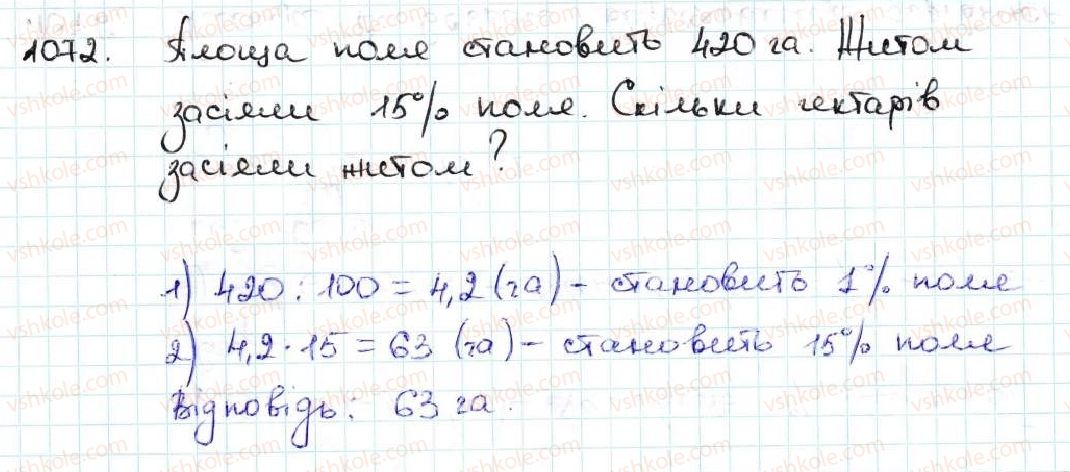 1072. Площа поля становить 420 га. Житом
засіяли 15% поля. Скільки гектарів
засіяли житом?
1) 420 : 100 = 4,2 (га) - становить 1% поля
2) 4,2 · 15 = 63 (га) - становить 15% поля
Відповідь: 63 га.